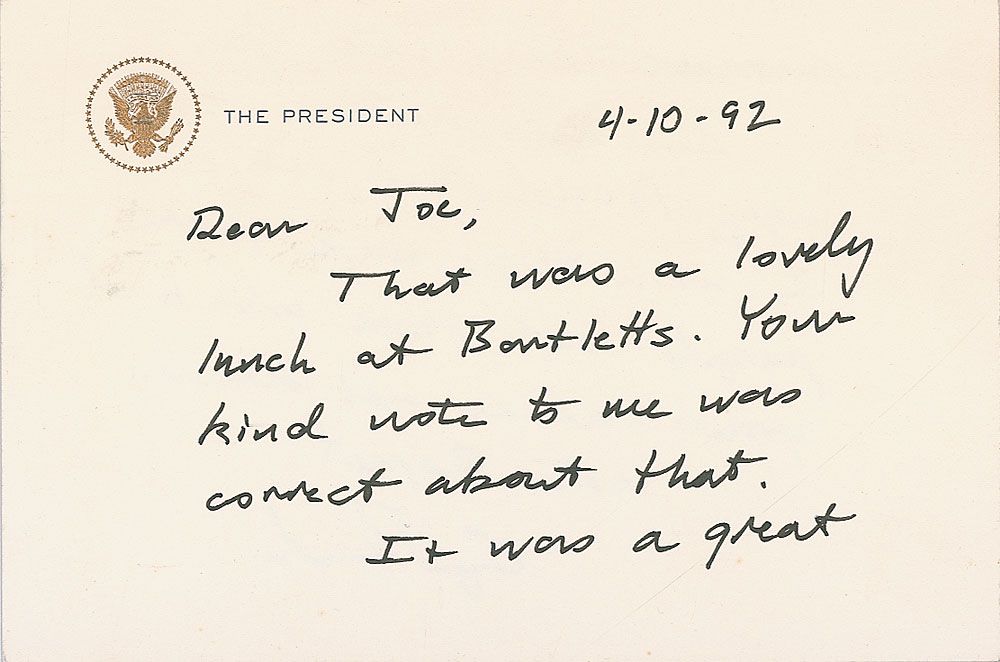 THE PRESIDENT
4-10-92
Dear Joe,
That was a lovely
lunch at Bartletts. Your
kind note to me was
correct about that.
It was a great